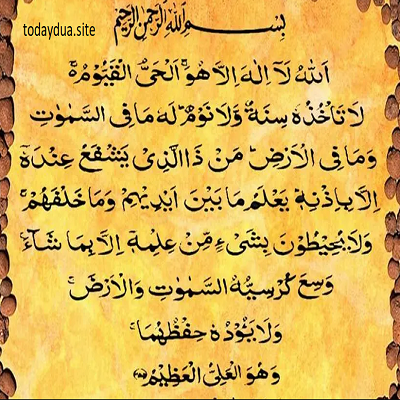 todaydua.site
بِسْمِ اللهِ الرَّحْمٰنِ الرَّحِيْمِ
اَللهُ لَآ اِلٰهَ اِلَّا هُوَ ۚ اَلْحَىُّ الْقَيُّوْمُ ۚ
لَا تَاْخُذُهٗ سِنَةٌ وَّلَا نَوْمٌ ؕ لَهٗ مَا فِى السَّمٰوٰتِ
وَمَا فِى الْاَرْضِ ؕ مَنْ ذَا الَّذِىْ يَشْفَعُ عِنْدَهٗۤ
اِلَّا بِاِذْنِهٖ ؕ يَعْلَمُ مَا بَيْنَ اَيْدِيْهِمْ وَمَا خَلْفَهُمْ ۚ
وَلَا يُحِيْطُوْنَ بِشَىْءٍ مِّنْ عِلْمِهٖۤ اِلَّا بِمَا شَآءَ ۚ
وَسِعَ كُرْسِيُّهُ السَّمٰوٰتِ وَالْاَرْضَ ۚ
وَلَا يَئُوْدُهٗ حِفْظُهُمَا ۚ
وَهُوَ الْعَلِىُّ الْعَظِيْمُ ﴿۲۵۵﴾